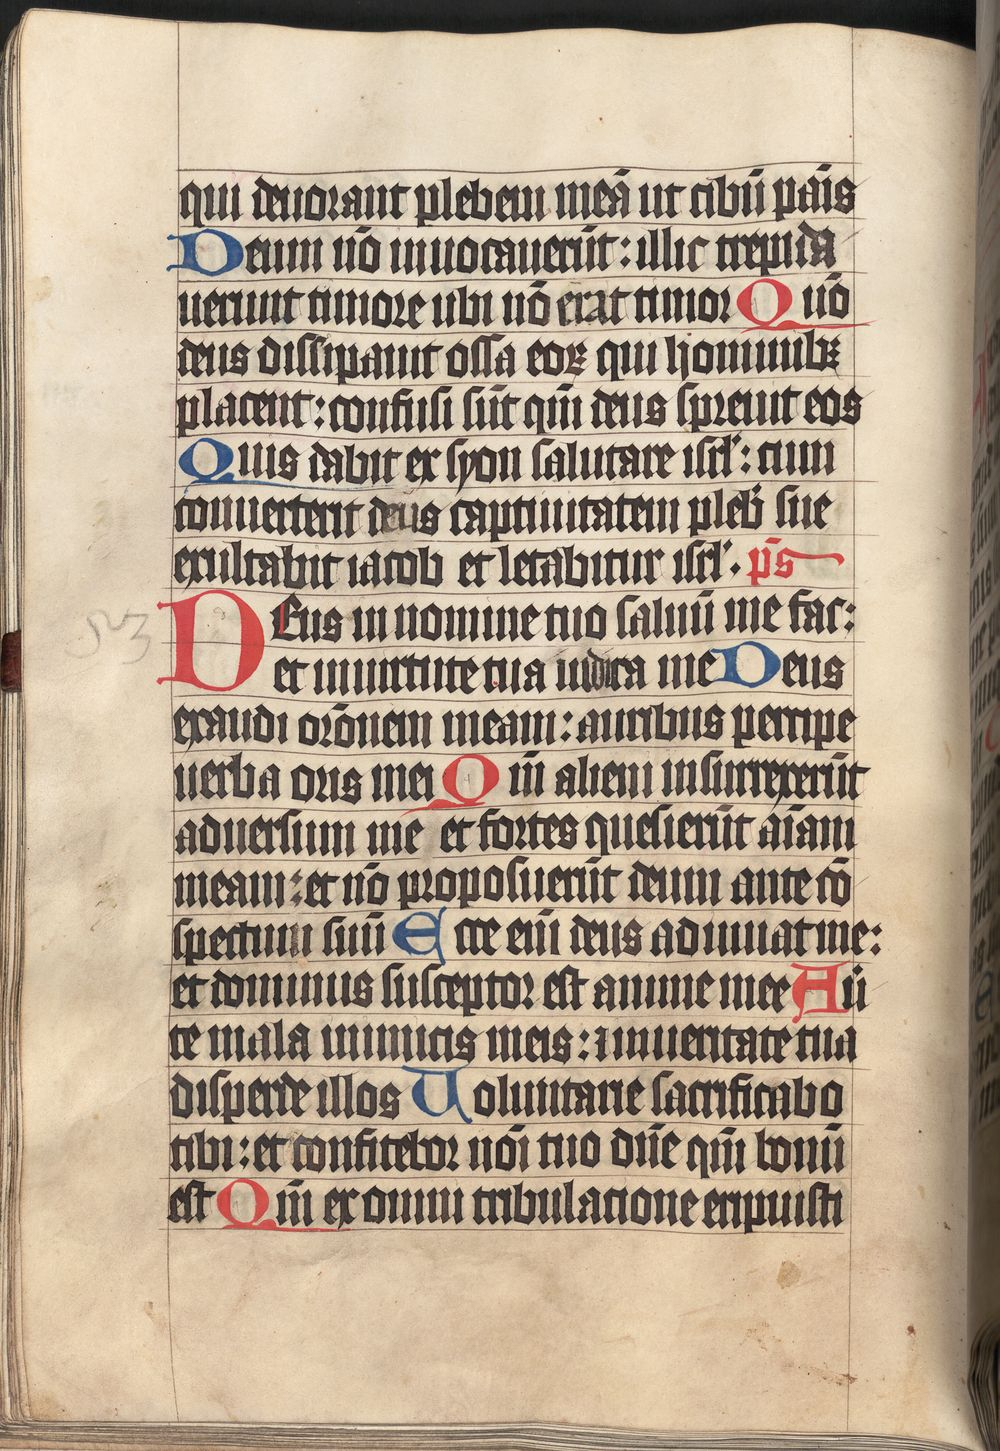 qui deuorant plebem meā ut cibū pāis
Deum nō inuocauerūt: illic trepida
uerunt timore ubi nō erat timor Qnō
deus dissipauit ossa eoꝝ qui hominibꝫ
placent: confusi sūt qm̄ deus spreuit eos
Quis dabit ex syon salutare isrl': cum
conuerterit deus captiuitatem pleb' sue
exultabit iacob et letabitur isrl'. ps
53
DEus in nomine tuo saluū me fac:
et in uirtute tua iudica me Deus
exaudi orōnem meam: auribus percipe
uerba oris mei Qm̄ alieni insurrexerūt
aduersum me et fortes quesierūt aīam
meam: et nō proposuerūt deum ante cō
spectum suū Ecce eni deus adiuuat me:
et dominus susceptor est anime mee Aū
te mala inimicis meis: in ueritate tua
disperde illos Uoluntarie sacrificabo
tibi: et confitebor nōi tuo dn̄e qm̄ bonū
est Qm̄ ex omni tribulatione eripuisti